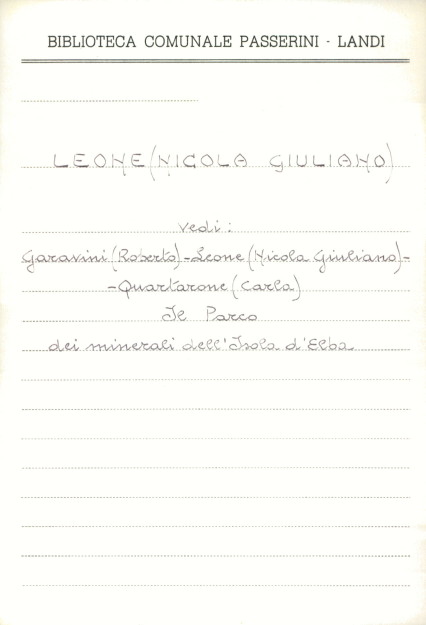 BIBLIOTECA COMUNALE PASSERINI - LANDI
LEONE (NICOLA GIULIANO)
Vedi:
Garavini (Roberto) - Leone (Nicola Giuliano) -
- Quartarone (Carla)
Il Parco
dei minerali dell'Isola d'Elba